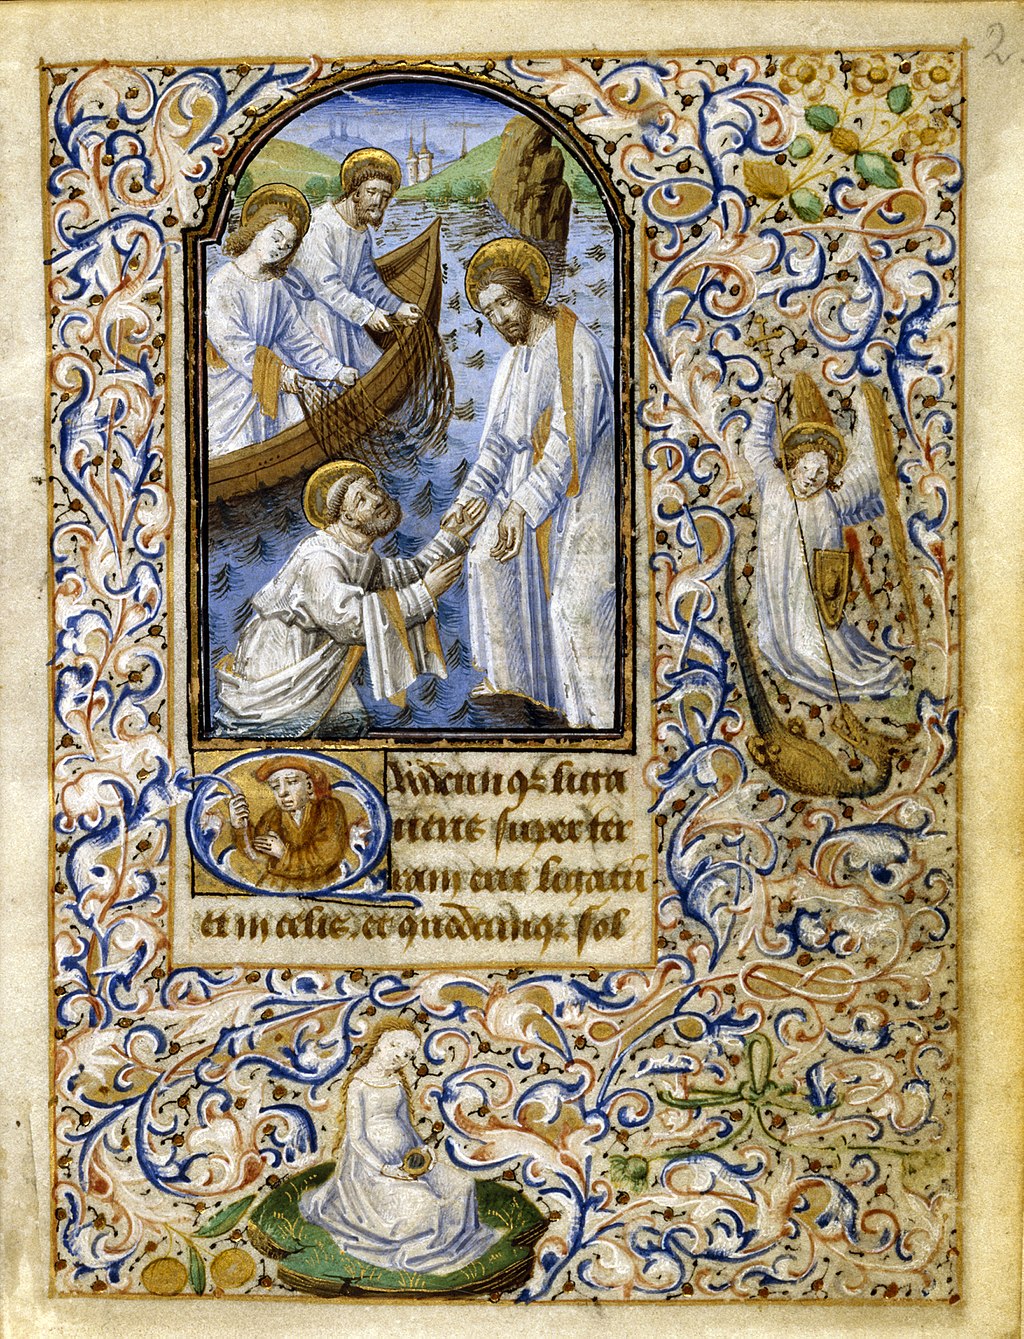 2.
Quodcunqꝫ liga
ueris super ter
ram erit ligatū
et in celis. et quodcunqꝫ sol